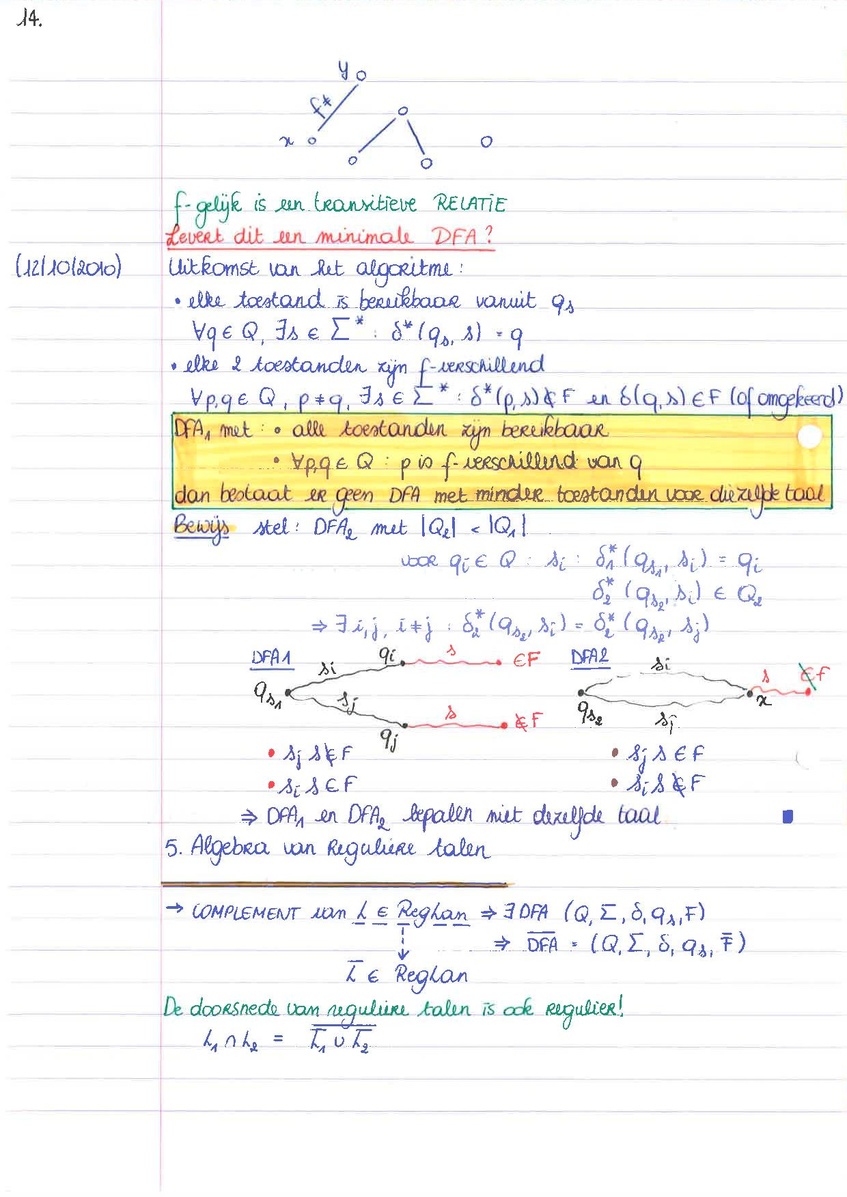 14.
y
f≠
x
f-gelijk is een transitieve RELATIE
Levert dit een minimale DFA?
(12/10/2010) Uitkomst van het algoritme:
• elke toestand is bereikbaar vanuit qₛ
∀q ∈ Q, ∃s ∈ Σ* : δ*(qₛ, s) = q
• elke 2 toestanden zijn f-verschillend
∀p,q ∈ Q, p ≠ q, ∃s ∈ Σ* : δ*(p,s) ∉ F en δ(q,s) ∈ F (of omgekeerd)
DFA₁ met: • alle toestanden zijn bereikbaar
• ∀p,q ∈ Q : p is f-verschillend van q
dan bestaat er geen DFA met minder toestanden voor diezelfde taal
Bewijs stel: DFA₂ met |Q₂| < |Q₁|
voor qᵢ ∈ Q : sᵢ : δ₁*(qₛ₁, sᵢ) = qᵢ
δ₂*(qₛ₂, sᵢ) ∈ Q₂
⇒ ∃ i,j, i≠j : δ₂*(qₛ₂, sᵢ) = δ₂*(qₛ₂, sⱼ)
DFA1 si qi s ∈F DFA2 si s ∉F
qₛ₁ sj qₛ₂ x
qj s ∉F sj
• sⱼ s ∉ F • sⱼ s ∈ F
• sᵢ s ∈ F • sᵢ s ∉ F
⇒ DFA₁ en DFA₂ bepalen niet dezelfde taal ■
5. Algebra van Reguliere talen
→ COMPLEMENT van L ∈ RegLan ⇒ ∃ DFA (Q, Σ, δ, qₛ, F)
⇒ D̅F̅A̅ = (Q, Σ, δ, qₛ, F̅)
L̅ ∈ RegLan
De doorsnede van reguliere talen is ook regulier!
L₁ ∩ L₂ = \overline{L̅₁ ∪ L̅₂}